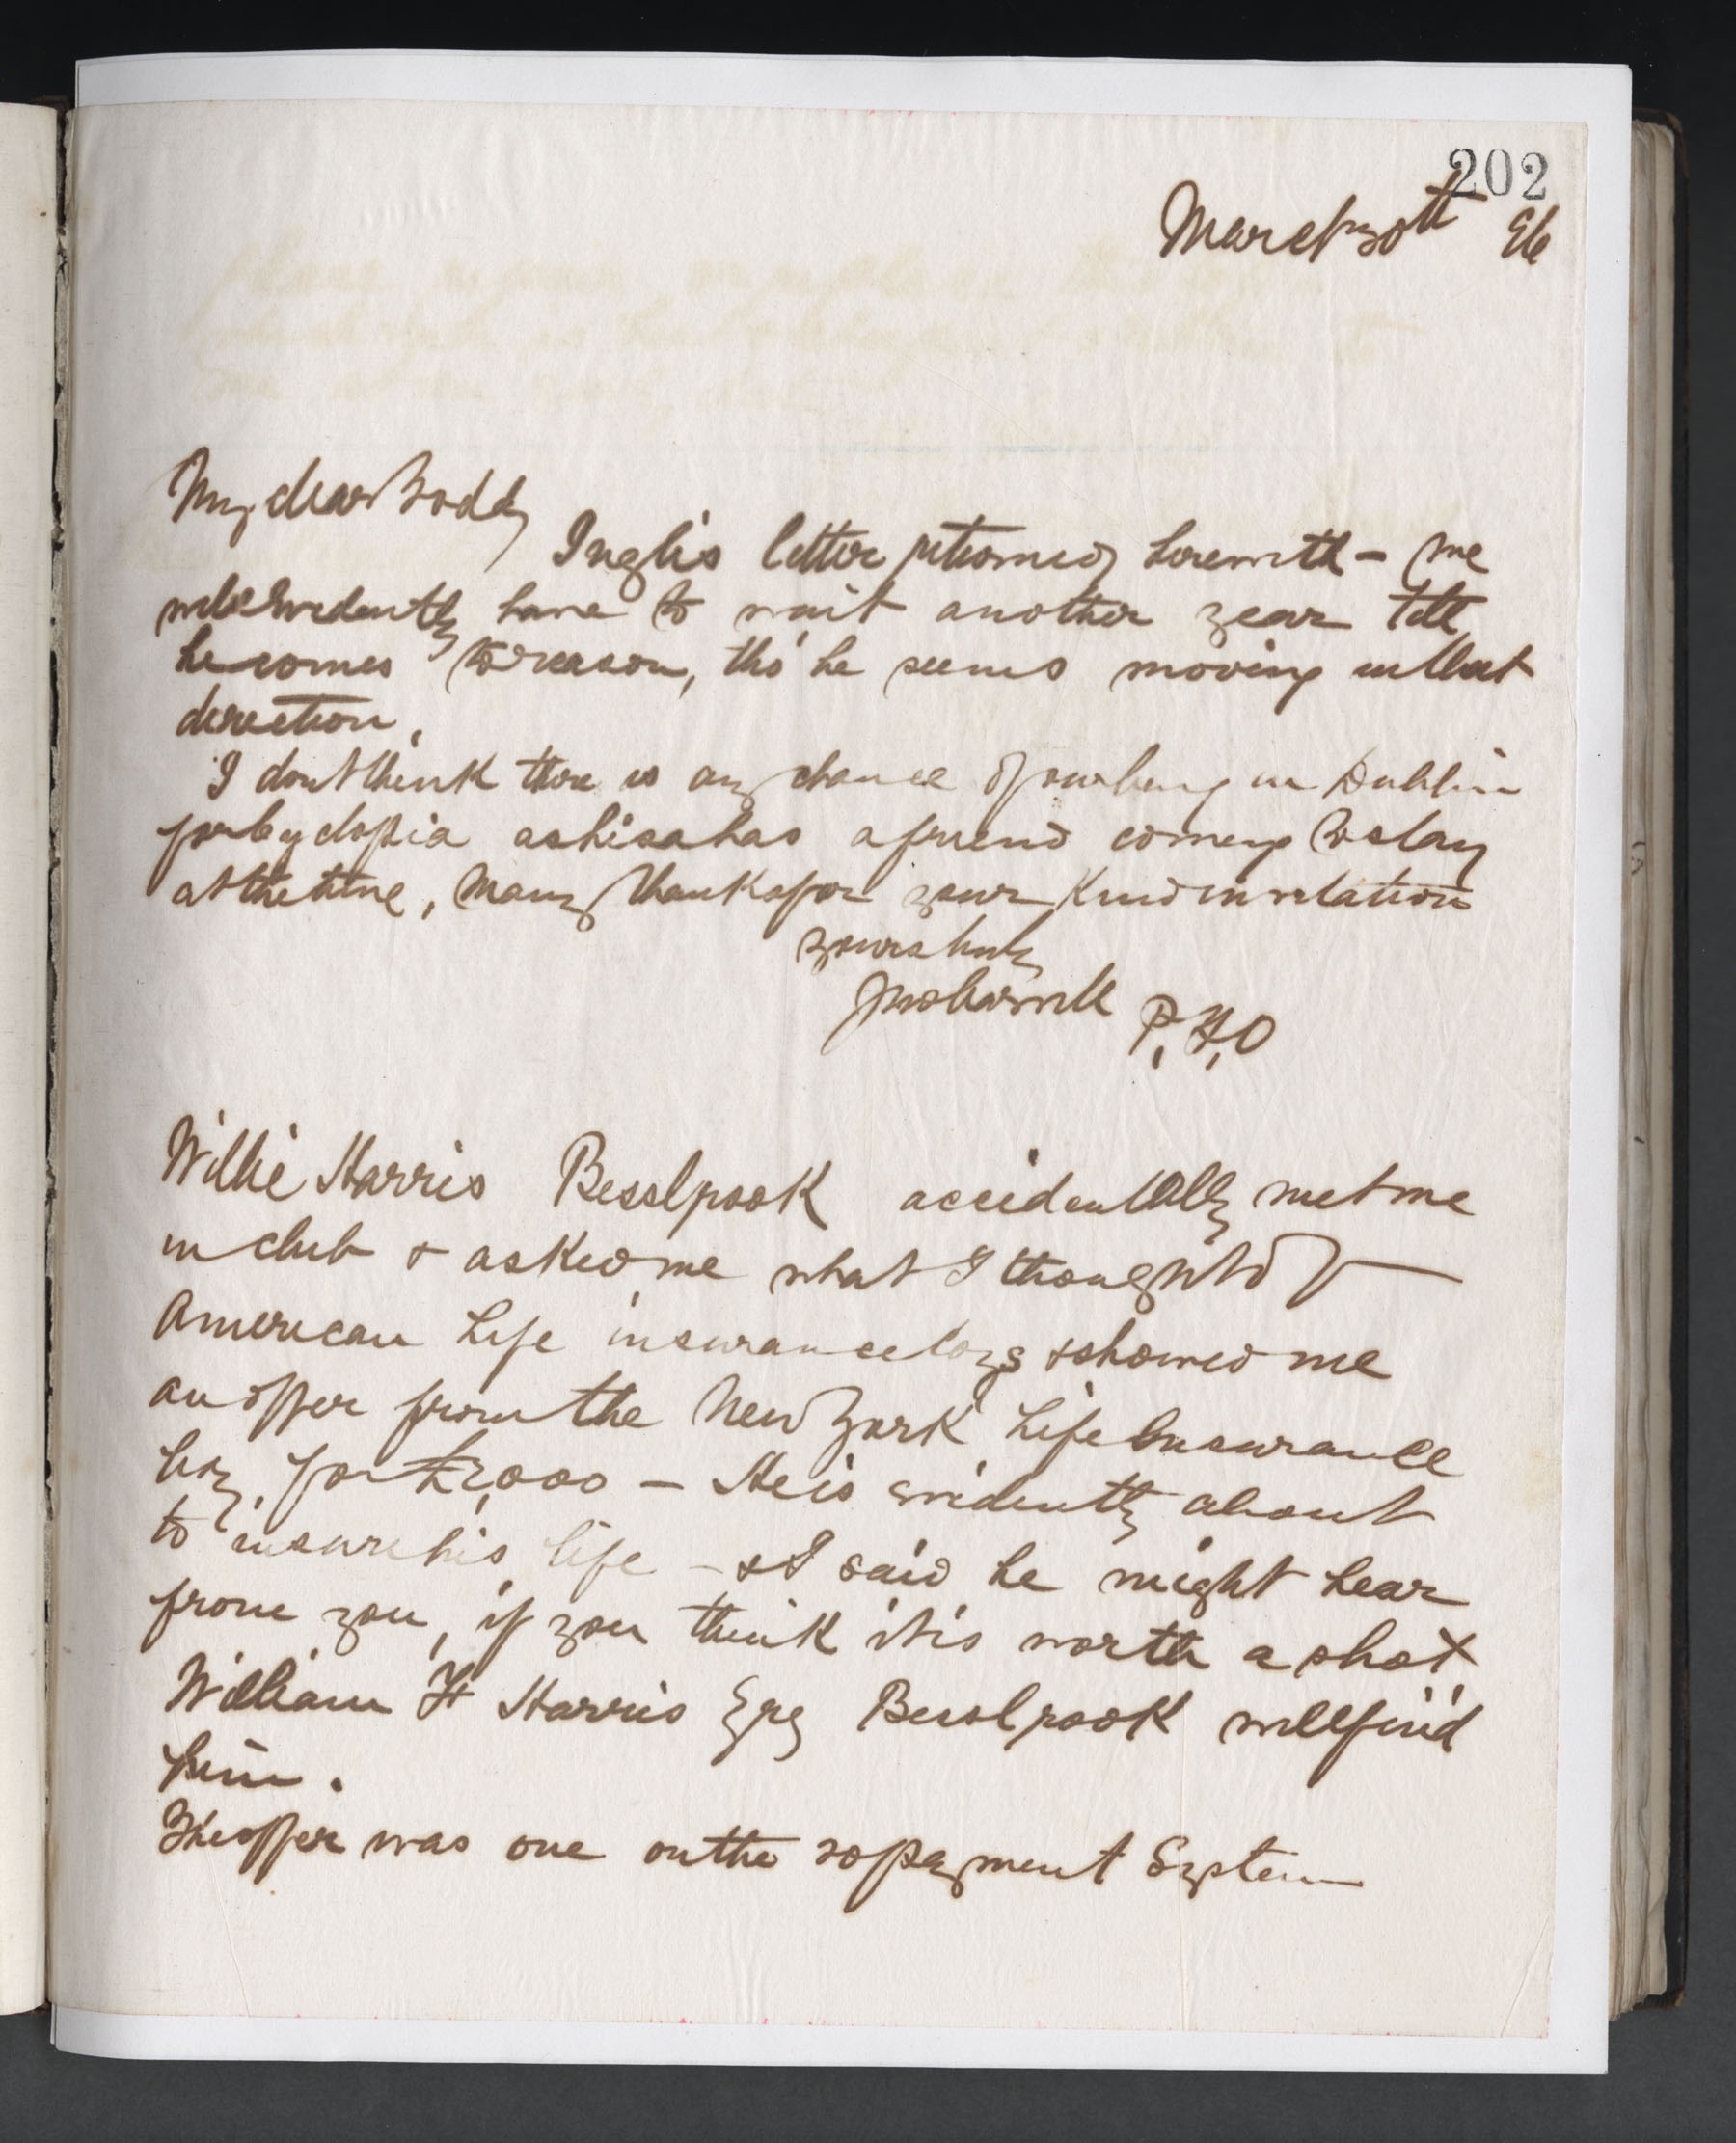 202
March 30th 96
My dear Toddy
Inglis letter returned herewith - we
will evidently have to wait another year till
he comes to reason, tho' he seems moving in that
direction.
I dont think there is any chance of our being in Dublin
for Cyclopia as hisahas a friend coming to stay
at the time, Many thanks for your kind invitation
yours truly
P.T.O
Willie Harris Bessbrook accidentally met me
in club & asked me what I thought of
American Life insurance Coys & showed me
an offer from the New York Life Insurance
Coy. for £2,000 - He is evidently about
to insure his life - & I said he might hear
from you, if you think it is worth a shot
William H Harris Esq Bessbrook will find
him.
The offer was one on the 20 payment System